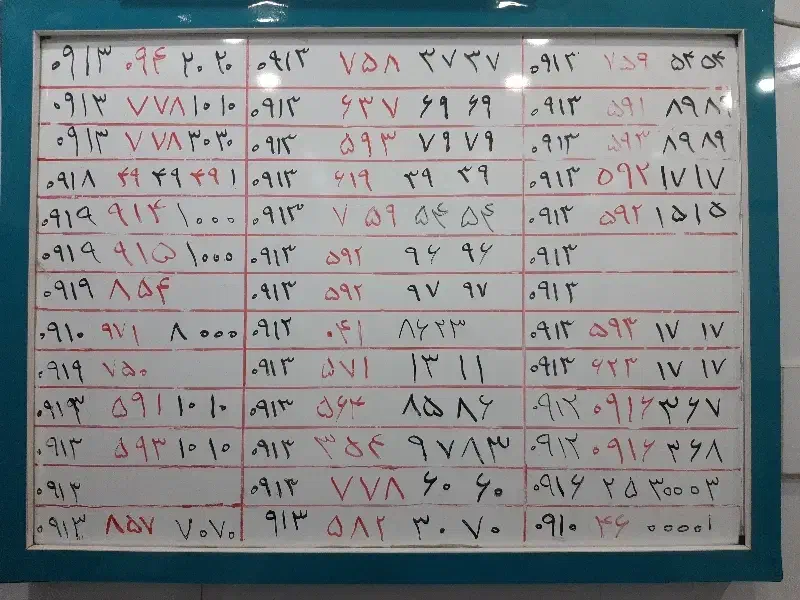 ۰۹۱۳ ۰۹۴ ۲۰۲۰
۰۹۱۳ ۷۵۸ ۳۷۳۷
۰۹۱۳ ۷۵۹ ۵۴۵۴
۰۹۱۳ ۷۷۸ ۱۰۱۰
۰۹۱۳ ۶۳۷ ۶۹ ۶۹
۰۹۱۳ ۵۹۱ ۸۹۸۹
۰۹۱۳ ۷۷۸ ۳۰۳۰
۰۹۱۳ ۵۹۳ ۷۹ ۷۹
۰۹۱۳ ۵۹۳ ۸۹۸۹
۰۹۱۸ ۴۹ ۴۹ ۴۹ ۱
۰۹۱۳ ۶۱۹ ۳۹ ۳۹
۰۹۱۳ ۵۹۲ ۱۷ ۱۷
۰۹۱۹ ۹۱۴ ۱۰۰۰
۰۹۱۳ ۷۵۹ ۵۴ ۵۴
۰۹۱۳ ۵۹۲ ۱۵۱۵
۰۹۱۹ ۹۱۵ ۱۰۰۰
۰۹۱۳ ۵۹۲ ۹۶ ۹۶
۰۹۱۳
۰۹۱۹ ۸۵۴
۰۹۱۳ ۵۹۲ ۹۷ ۹۷
۰۹۱۳
۰۹۱۰ ۹۷۱ ۸۰۰۰
۰۹۱۲ ۰۴۱ ۸۶۲۳
۰۹۱۳ ۵۹۳ ۱۷ ۱۷
۰۹۱۹ ۷۵۰
۰۹۱۳ ۵۷۱ ۱۳ ۱۱
۰۹۱۳ ۶۲۳ ۱۷ ۱۷
۰۹۱۳ ۵۹۱ ۱۰۱۰
۰۹۱۳ ۵۶۴ ۸۵۸۶
۰۹۱۲ ۰۹۱۶ ۳۶۷
۰۹۱۳ ۵۹۳ ۱۰۱۰
۰۹۱۳ ۳۵۴ ۹۷۸۳
۰۹۱۲ ۰۹۱۶ ۳۶۸
۰۹۱۳
۰۹۱۳ ۷۷۸ ۶۰ ۶۰
۰۹۱۶ ۲۵ ۳۰۰۰۳
۰۹۱۳ ۸۵۷ ۷۰۷۰
۹۱۳ ۵۸۲ ۳۰ ۷۰
۰۹۱۰ ۴۶ ۰۰۰۰۱